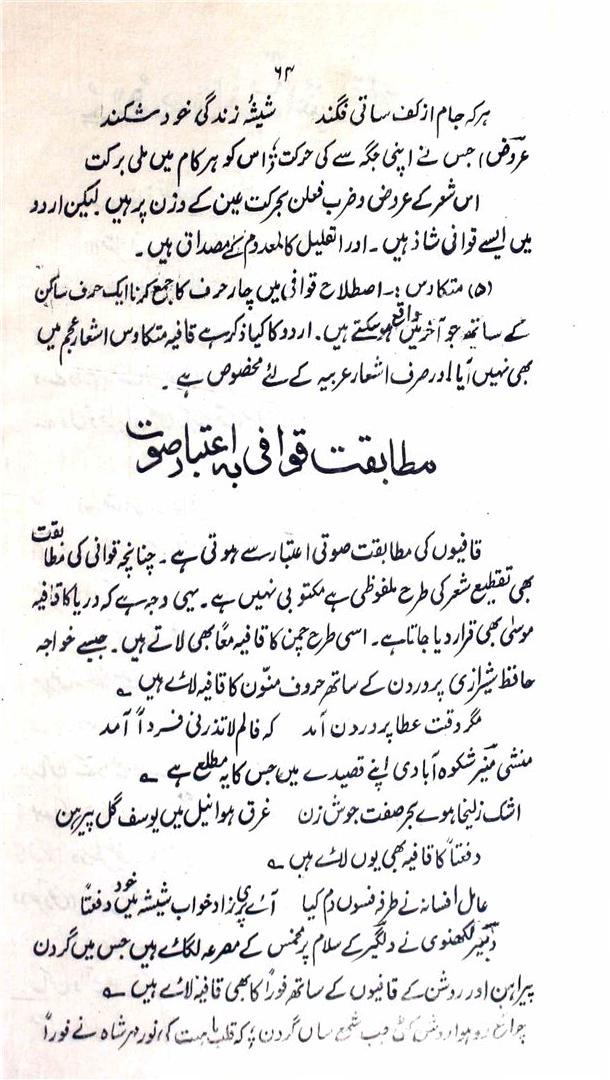 ۶۴
ہرکہ جام از کف ساقی فگند شیشۂ زندگی خود شکند
عروض) جس نے اپنی جگہ سے کی حرکت اس کو ہر کام میں ملی برکت
اس شعر کے عروض و ضرب فعلن بحرکت عین کے وزن پر ہیں لیکن اردو
میں ایسے قوافی شاذ ہیں۔ اور القلیل کالمعدوم کے مصداق ہیں۔
(۵) متکاوس :۔ اصطلاح قوافی میں چار حرف کا جمع کرنا ایک حرف ساکن
کے ساتھ جو آخر میں واقع ہو سکتے ہیں۔ اردو کا کیا ذکر ہے قافیہ متکاوس اشعار عجم میں
بھی نہیں آیا اور صرف اشعار عربیہ کے لئے مخصوص ہے۔
مطابقت قوافی بہ اعتبار صوت
قافیوں کی مطابقت صوتی اعتبار سے ہوتی ہے۔ چنانچہ قوافی کی مطابقت
بھی تقطیع شعر کی طرح ملفوظی ہے مکتوبی نہیں ہے۔ یہی وجہ ہے کہ دریا کا قافیہ
موسٰی بھی قرار دیا جاتا ہے۔ اسی طرح چمن کا قافیہ معاً بھی لاتے ہیں۔ جیسے خواجہ
حافظ شیرازی پروردن کے ساتھ حروف منوّن کا قافیہ لائے ہیں ؎
مگر وقت عطا پروردن آمد کہ فالم لاتذرنی فرداً آمد
منشی منیر شکوہ آبادی اپنے قصیدے میں جس کا یہ مطلع ہے ؎
اشک زلیخا ہوے بحر صفت جوش زن غرق ہوا نیل میں یوسف گل پیرہن
دفعتاً کا قافیہ بھی یوں لائے ہیں ؎
عامل افسانہ نے طرفہ فسوں دم کیا آئے پریزاد خواب شیشہ میں خود دفعتاً
دبیر لکھنوی نے دلگیر کے سلام پر مخمس کے مصرعہ لگائے ہیں جس میں گردن
پیراہن اور روشن کے قافیوں کے ساتھ فوراً کا بھی قافیہ لائے ہیں ؎
ہوا روشن کٹی جب شمع ساں گردن کہ قلب کی نور مہر شاہ نے فوراً